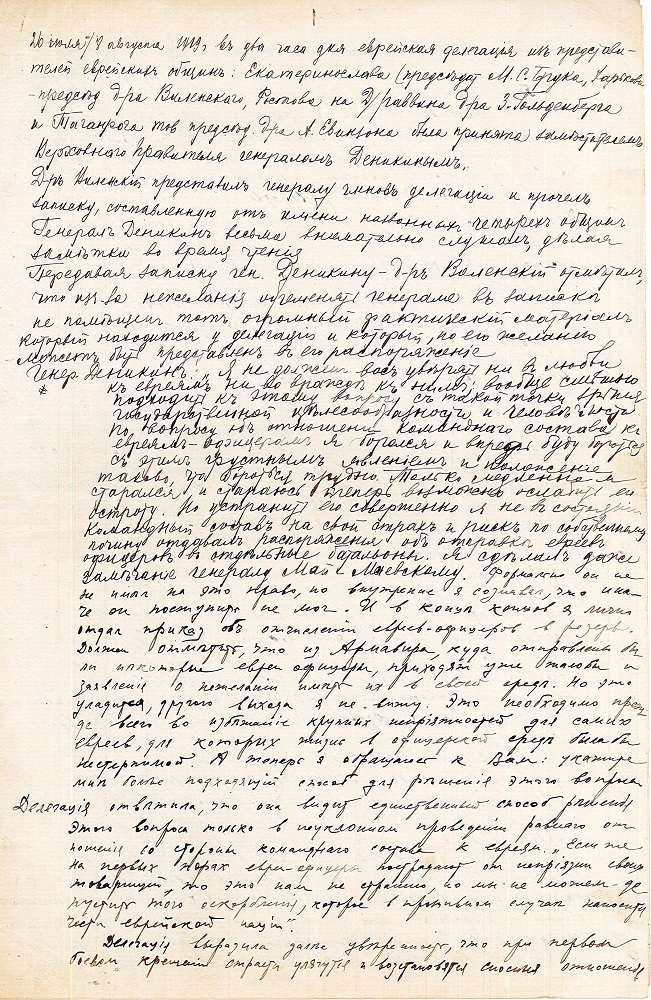 26 июля/8 августа 1919 г въ два часа дня еврейская делегація изъ представи-
телей еврейскихъ общинъ: Екатеринослава (предсѣдат М. С. Брука, Харькова
-предсѣд д-ра Виленскаго, Ростова на Д/раввина д-ра З. Гольденберга
и Таганрога тов предсѣд. д-ра А. Евинзона была принята замѣстителемъ
Верховнаго Правителя генераломъ Деникинымъ.
Д-ръ Виленскій представилъ генералу членовъ делегаціи и прочелъ
записку, составленную отъ имени названныхъ четырехъ общинъ
Генералъ Деникинъ весьма внимательно слушалъ, дѣлая
замѣтки во время чтенія
Передавая записку ген. Деникину - д-ръ Виленскій отмѣтилъ,
что изъ-за нежеланія обременять генерала въ записку
не помѣщенъ тотъ огромный фактическій матеріалъ
который находится у делегаціи и который, по его желанію
можетъ быть представленъ въ его распоряженіе
Генер Деникинъ: „Я не долженъ васъ увѣрять ни въ любви
къ евреямъ ни во враждѣ къ нимъ; вообще слѣдуетъ
подходить къ этому вопросу съ такой точки зрѣнія
государственной цѣлесообразности и человѣчности
По вопросу объ отношеніи команднаго состава къ
евреямъ-офицерамъ я боролся и впредь буду бороться
съ этимъ грустнымъ явленіемъ и положеніе
таково, что бороться трудно. Только медленно я
старался и стараюсь теперь возможно ослабить его
остроту. Но устранить его совершенно я не въ состояніи
Командный составъ на свой страхъ и рискъ по собственному
почину отдавалъ распоряженія объ отправкѣ евреевъ
офицеровъ въ отдѣльные батальоны. Я сдѣлалъ даже
замѣчаніе генералу Май-Маевскому. Формально он не
имѣлъ на это право, но внутренне я сознавалъ, что ина-
че он поступить не мог. И в концѣ концов я лично
отдал приказ об отчисленіи евреев-офицеров в резерв.
Должен отмѣтить, что из Армавира, куда отправлены бы-
ли нѣкоторые евреи офицеры, приходят уже жалобы и
заявленія о нежеланіи имѣть их в своей средѣ. Но это
уладится, другого выхода я не вижу. Это необходимо преж-
де всего во избѣжаніе крупных непріятностей для самих
евреев, для которых жизнь в офицерской средѣ была бы
нестерпимой. А теперь я обращаюсь к Вам: укажите
мнѣ болѣе подходящій способ для рѣшенія этого вопроса
Делегація отвѣтила, что она видит единственный способ рѣшенія
этого вопроса только в неуклонном проведеніи равного от-
ношенія со стороны команднаго состава к евреям. „Если же
на первых порах евреи-офицеры пострадают от непріязни своих
товарищей, то это нам не страшно, но мы не можем до-
пустить того оскорбленія, которое в противном случаѣ наносится
чести еврейской націи".
Делегація выразила далѣе увѣренность, что при первом
боевом крещеніи страсти улягутся и возстановятся сносныя отношенія